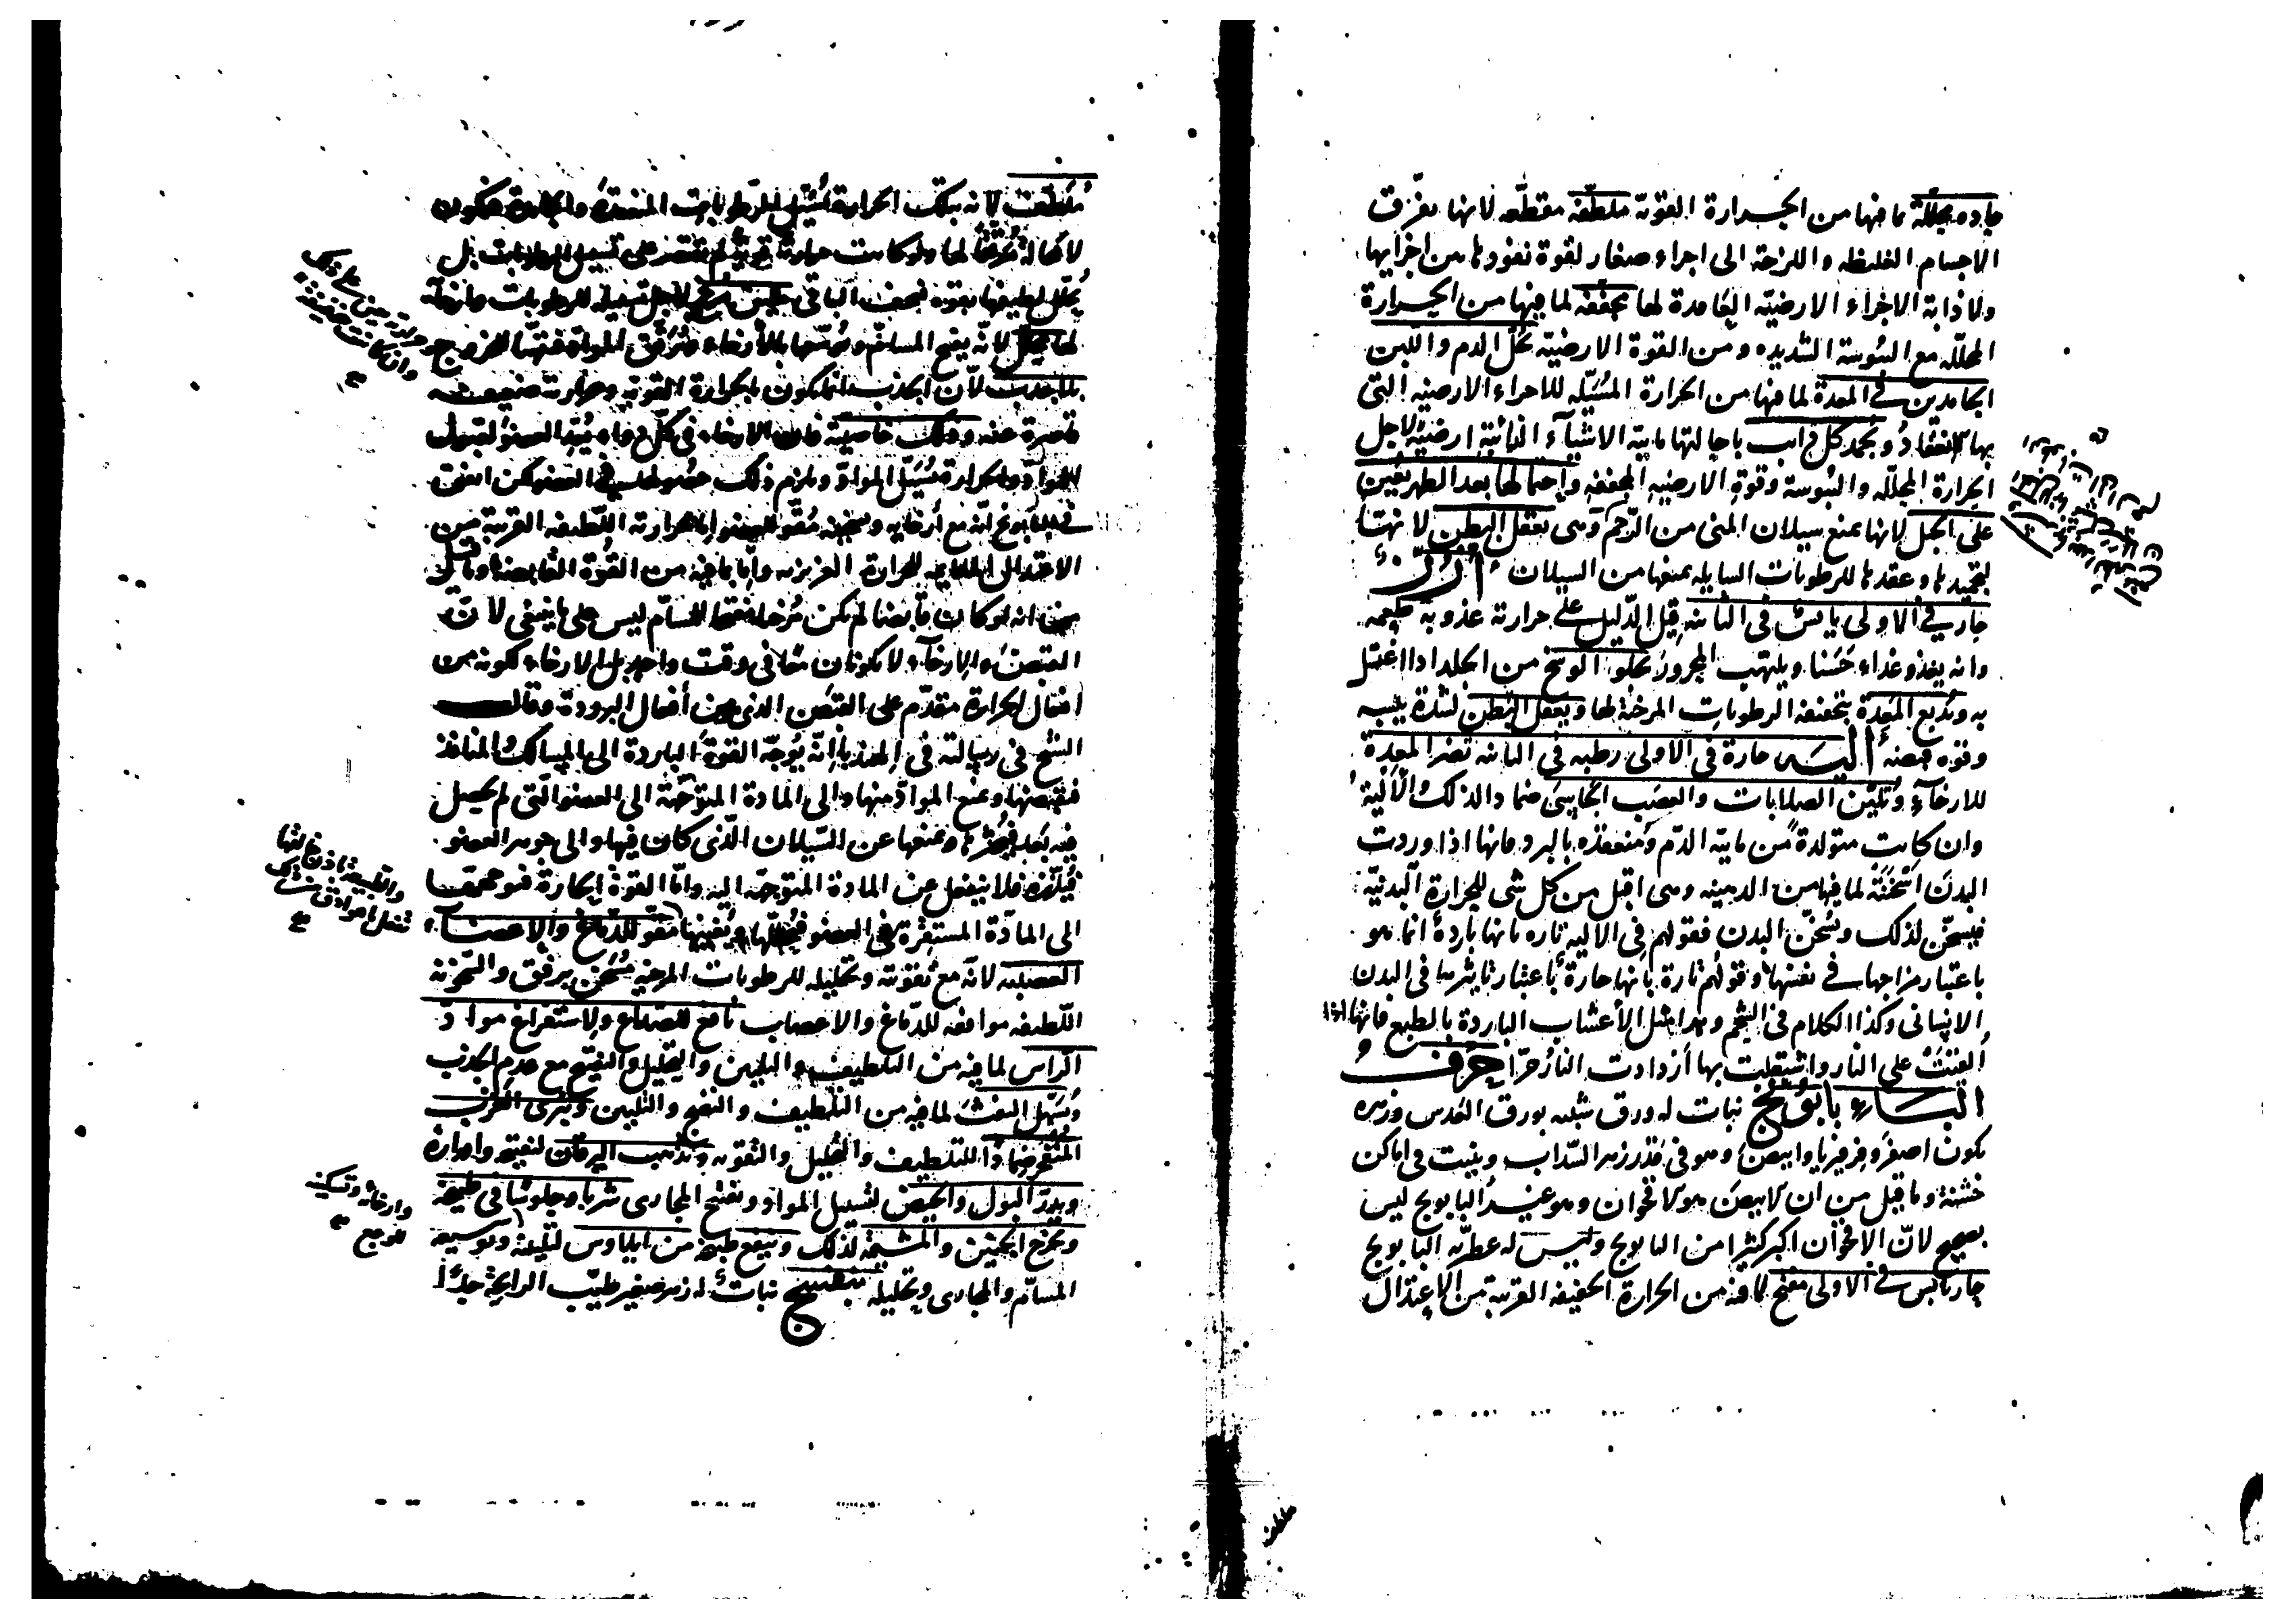 حاده محللة لما فيها من الحرارة القوية ملطفه مقطعه لانها تفرق
الاجسام الغليظه واللزجة الى اجزاء صغار لقوة نفوذها من اجزايها
ولاذابة الاجزاء الارضيّه العاقدة لها مجففه لما فيها من الحرارة
المحلله مع اليبوسة الشديده ومن القوة الارضيّه تحل الدم واللبن
الجامدين في المعدة لما فيها من الحرارة المسيّله للاجزاء الارضيه التى
بها الانعقاد وتجمد كل ذائب باحالتها مايية الاشياء الذائبة ارضية لاجل
الحرارة المحلّله واليبوسة وقوة الارضيه المجففه واحتمالها بعد الطهر يعين
على الحبل لانها تمنع سيلان المنى من الرحم وهى تعقل البطن لانها
بتجميدها وعقدها للرطوبات السايله تمنعها من السيلان ارز
حار في الاولى يابس فى الثانيه قيل الدليل على حرارته عذوبة طعمه
وانه يغذو غذاء حسنا ويلهب المحرور يجلو الوسخ من الجلد اذا اغتسل
به ويدبغ المعدة بتجفيفه الرطوبات المرخية لها ويعقل البطن لشدة يبسه
وقوة قبضه الية حارة فى الاولى رطبه فى الثانيه تضر المعدة
للارخاء وتلين الصلابات والعصب الجاسى ضمادا لذلك والالية
وان كانت متولدة من مايية الدم ومنعقده بالبرد فانها اذا وردت
البدن اسخنته لما فيها من الدهنيه وهى اقبل من كل شى للحرارة البدنيّة
فيسخن لذلك ويسخن البدن فقولهم فى الاليه تارة بانها باردة انما هو
باعتبار مزاجها في نفسها وقولهم تارة بانها حارة باعتبار تاثيرها فى البدن
الانسانى وكذا الكلام فى الشحم وهذا مثل الاعشاب الباردة بالطبع فانها اذا
القيت على النار واشتعلت بها ازدادت النار حرّا حرف
الباء بابونج نبات له ورق شبيه بورق القدس وزهره
يكون اصفر وفرفيريا وابيض وهو فى قدر زهر السداب وينبت فى اماكن
خشنة وما قيل من ان الابيض هو الاقحوان وهو غير البابونج ليس
بصحيح لانّ الاقحوان اكبر كثيرا من البابونج وليس له عطريّة البابونج
حار يابس في الاولى مفتح لما فيه من الحرارة الخفيفه القريبة من الاعتدال
ملطف
ملطف لانه بتلك الحرارة يسيّل الرطوبات المنعقدة والجامدة فيكون
لا محالة مرققا لها ولو كانت حرارته قوية لم يقتصر على تسييل الرطوبات بل
يحلل لطيفها بقوة فيجف الباقى ملين مرخ لاجل تسييله للرطوبات وارخائه
لها محلل لانه يفتح المسامّ ويوسّعها بالارخاء ويرقق المواد فتتهيّا للخروج
بلا جذب لان الجذب انما يكون بالحرارة القوية وحرارته ضعيفه
قاصرة عنه وذلك خاصية فان الارخاء فى كل دواء يعدّ العضو لقبول
المواد والحرارة تسيّل المواد ويلزم ذلك حصولها في العضو لكن اتفق
في البابونج انه مع ارخايه وتسخينه مقو للعضو اما لحرارته اللطيفه القريبة من
الاعتدال الملايمه للحرارة الغريزيه واما لما فيه من القوة القابضة وما قيل
من انه لو كان قابضا لم يكن مرخيا مفتحا للمسام ليس على ما ينبغى لان
القبض والارخاء لا يكونان معا فى وقت واحد بل الارخاء لكونه من
افعال الحرارة متقدم على القبض الذى هو من افعال البرودة وقال
الشيخ فى رسالته فى الهندبا انه يوجّه القوة الباردة الى المسالك والمنافذ
فيقبضها ويمنع المواد منها والى المادة المتوجّهة الى العضو التى لم تحصل
فيه بعد ويمنعها عن السيلان الذى كان فيها والى جوهر العضو
فلا ينفعل عن المادة المتوجّهة اليه وامّا القوة الحارة
الى المادّة المستقرة في العضو فيحللها ويفنيها مقو للدماغ والاعضاء
العصبية لانه مع تقويته وتحليله للرطوبات المرخيه مسخن برفق والسخونة
اللطيفه موافقه للدماغ والاعصاب نافع للصداع ولاستفراغ مواد
الراس لما فيه من التلطيف والتليين والتحليل والتفتيح مع عدم الجذب
ويسهل النفث لما فيه من التلطيف والنضج والتليين ويبرى الغرب
المنفجر ضمادا للتلطيف والتحليل والتقويه ويذهب اليرقان لتفتيحه وادراره
ويدر البول والحيض لتسييل المواد وتفتيح المجارى شربا وجلوسا فى طبيخه
ويخرج الجنين والمشيمة لذلك وينفع طبيخه من ايلاوس لتليينه وتوسيعه
المسامّ والمجارى وتحليله بنفسج نبات له زهر صغير طيب الرايحة جدا
وارخائه وتسكينه
للوجع صح